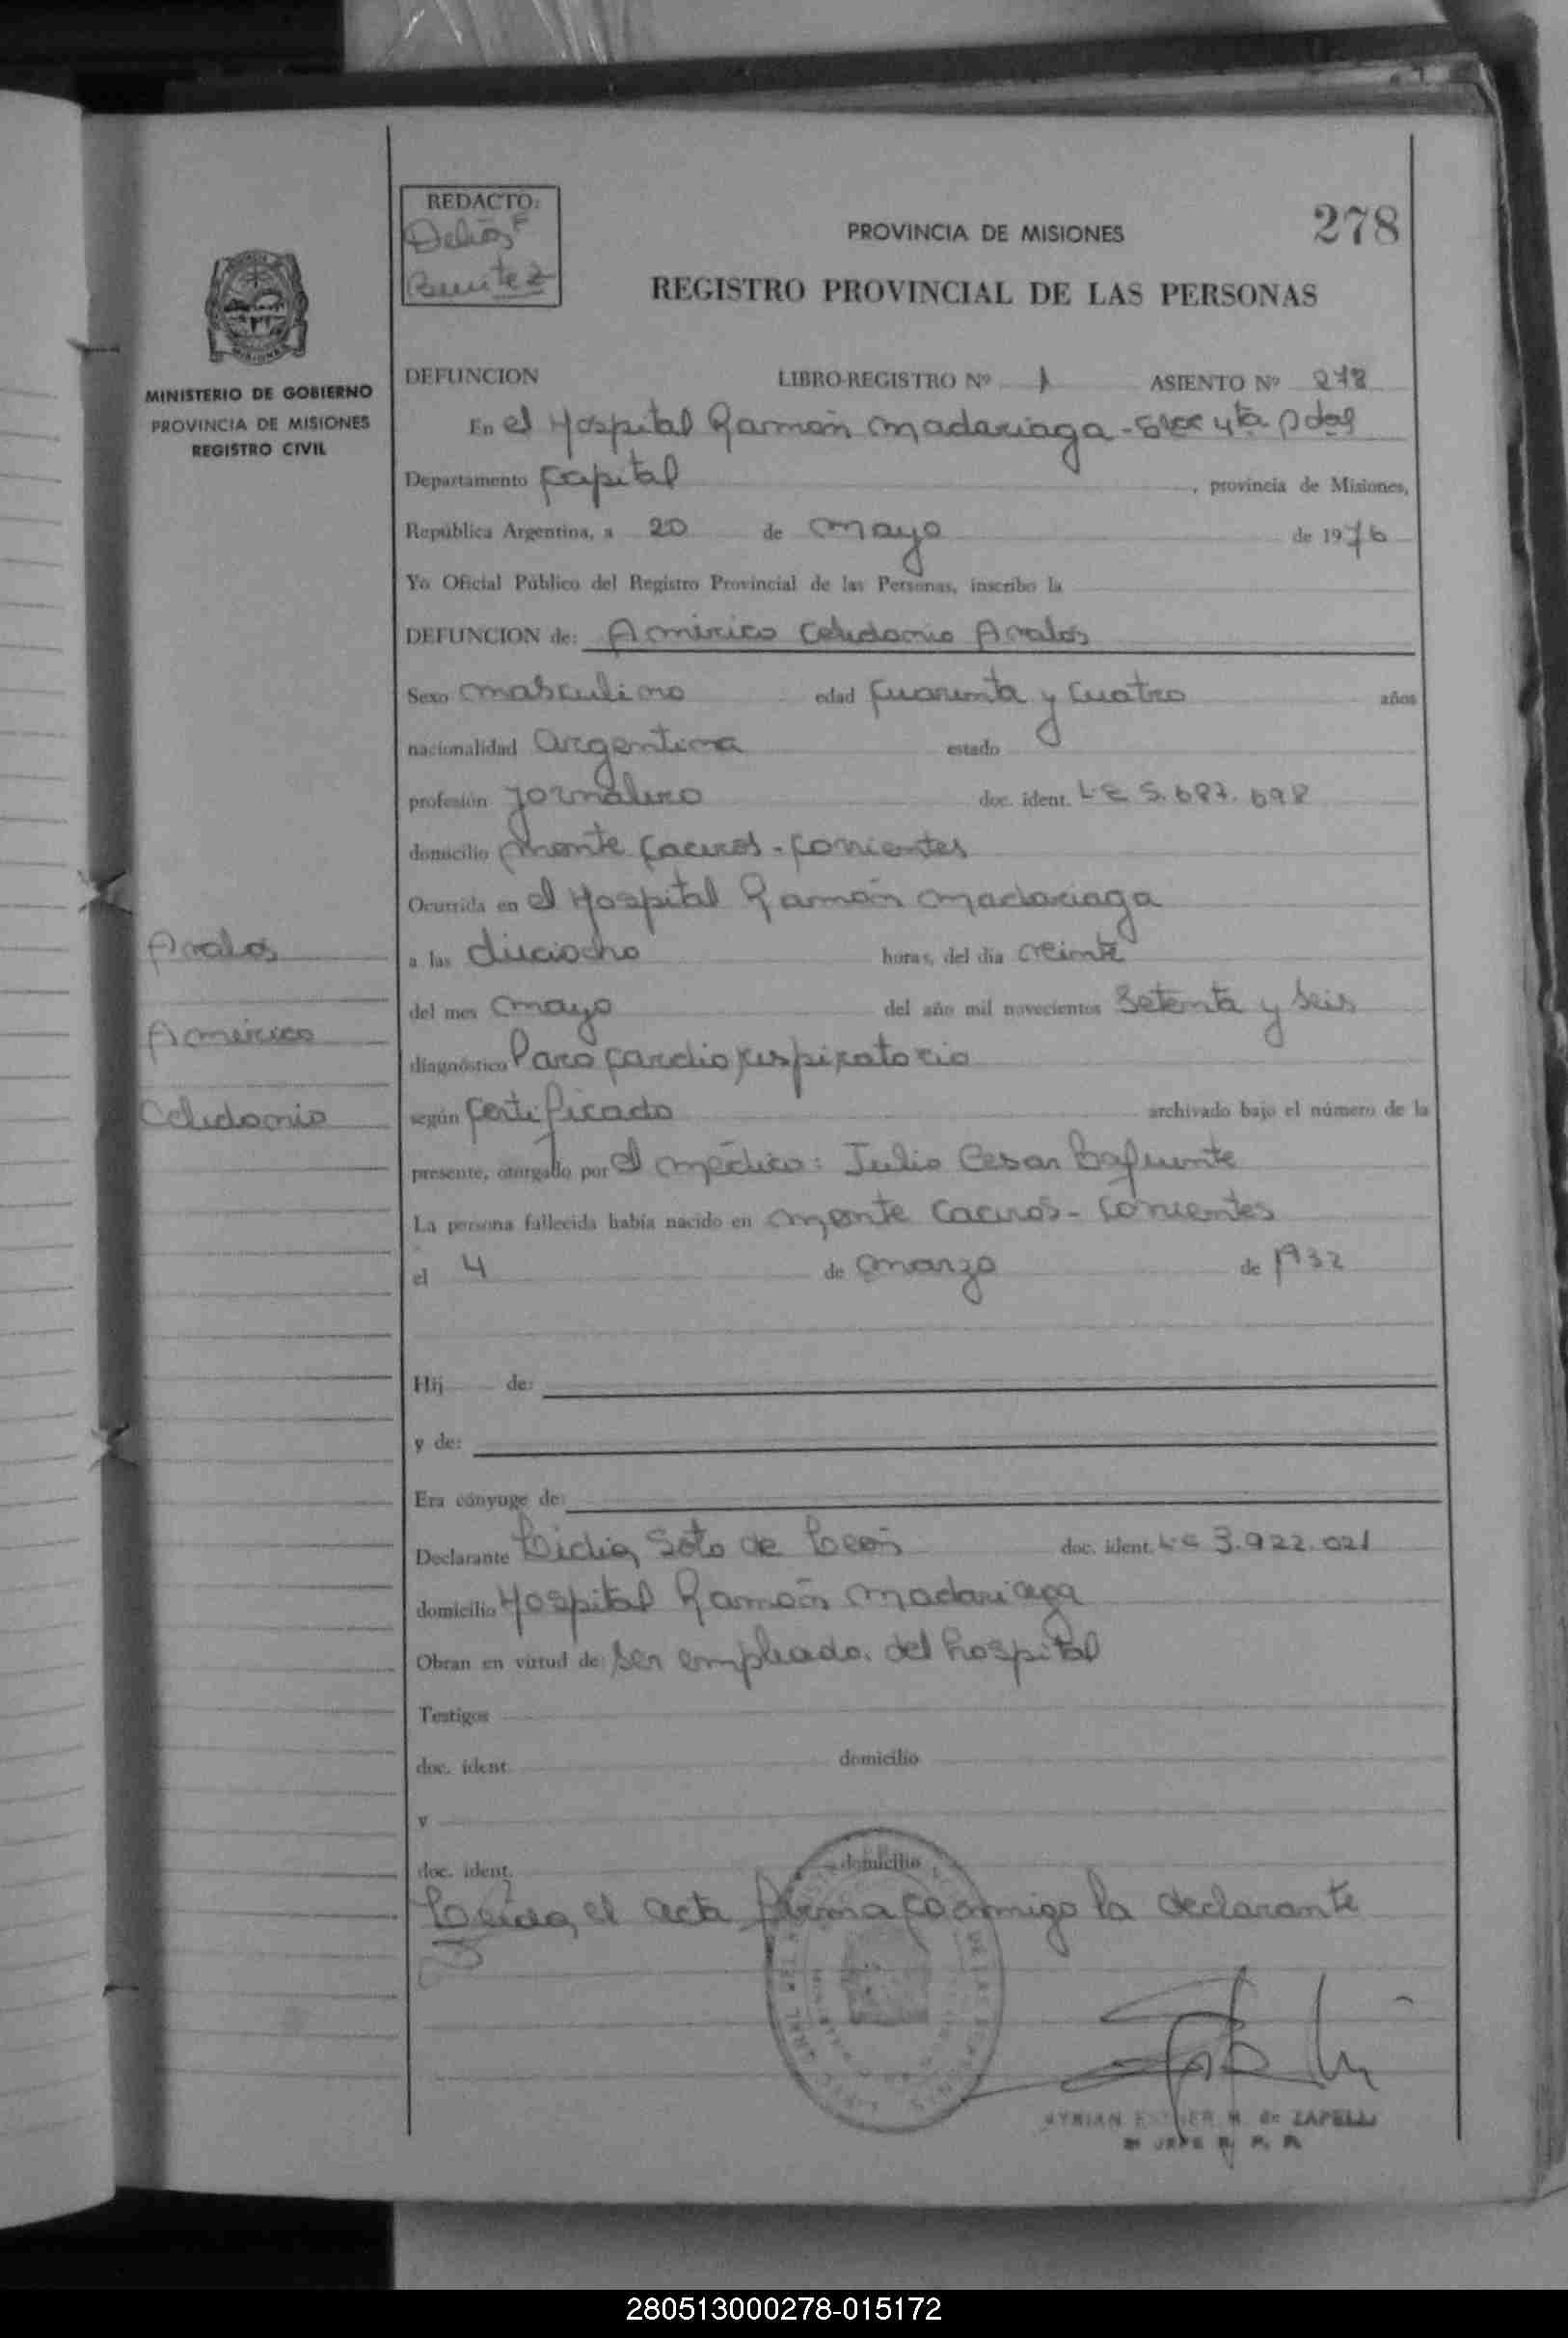 REDACTO:
Delia F
Benitez
PROVINCIA DE MISIONES
278
REGISTRO PROVINCIAL DE LAS PERSONAS
MISIONES
MINISTERIO DE GOBIERNO
PROVINCIA DE MISIONES
REGISTRO CIVIL
DEFUNCION LIBRO-REGISTRO Nº 1 ASIENTO Nº 278
En el Hospital Ramón Madariaga - Secc 4ta Pdas
Departamento Capital, provincia de Misiones,
República Argentina, a 20 de Mayo de 1976
Yo Oficial Público del Registro Provincial de las Personas, inscribo la
DEFUNCION de: Américo Celidonio Avalos
Sexo masculino edad cuarenta y cuatro años
nacionalidad argentina estado
profesión jornalero doc. ident. L E 5.687.698
domicilio Monte Caceros - Corrientes
Ocurrida en el Hospital Ramón Madariaga
a las dieciocho horas, del día veinte
del mes mayo del año mil novecientos setenta y seis
diagnóstico Paro cardio respiratorio
según certificado archivado bajo el número de la
presente, otorgado por el médico: Julio Cesar Lafuente
La persona fallecida había nacido en Monte Caceros - Corrientes
el 4 de marzo de 1932
Hij de:
y de:
Era cónyuge de:
Declarante Lidia Soto de León doc. ident. L C 3.922.021
domicilio Hospital Ramón Madariaga
Obran en virtud de: ser empleada del hospital
Testigos
doc. ident. domicilio
y
doc. ident. domicilio
Leida el acta firma conmigo la declarante
Avalos
Américo
Celidonio
MYRIAN ESTHER M. de ZAPELLI
JEFE R. P. P.
280513000278-015172